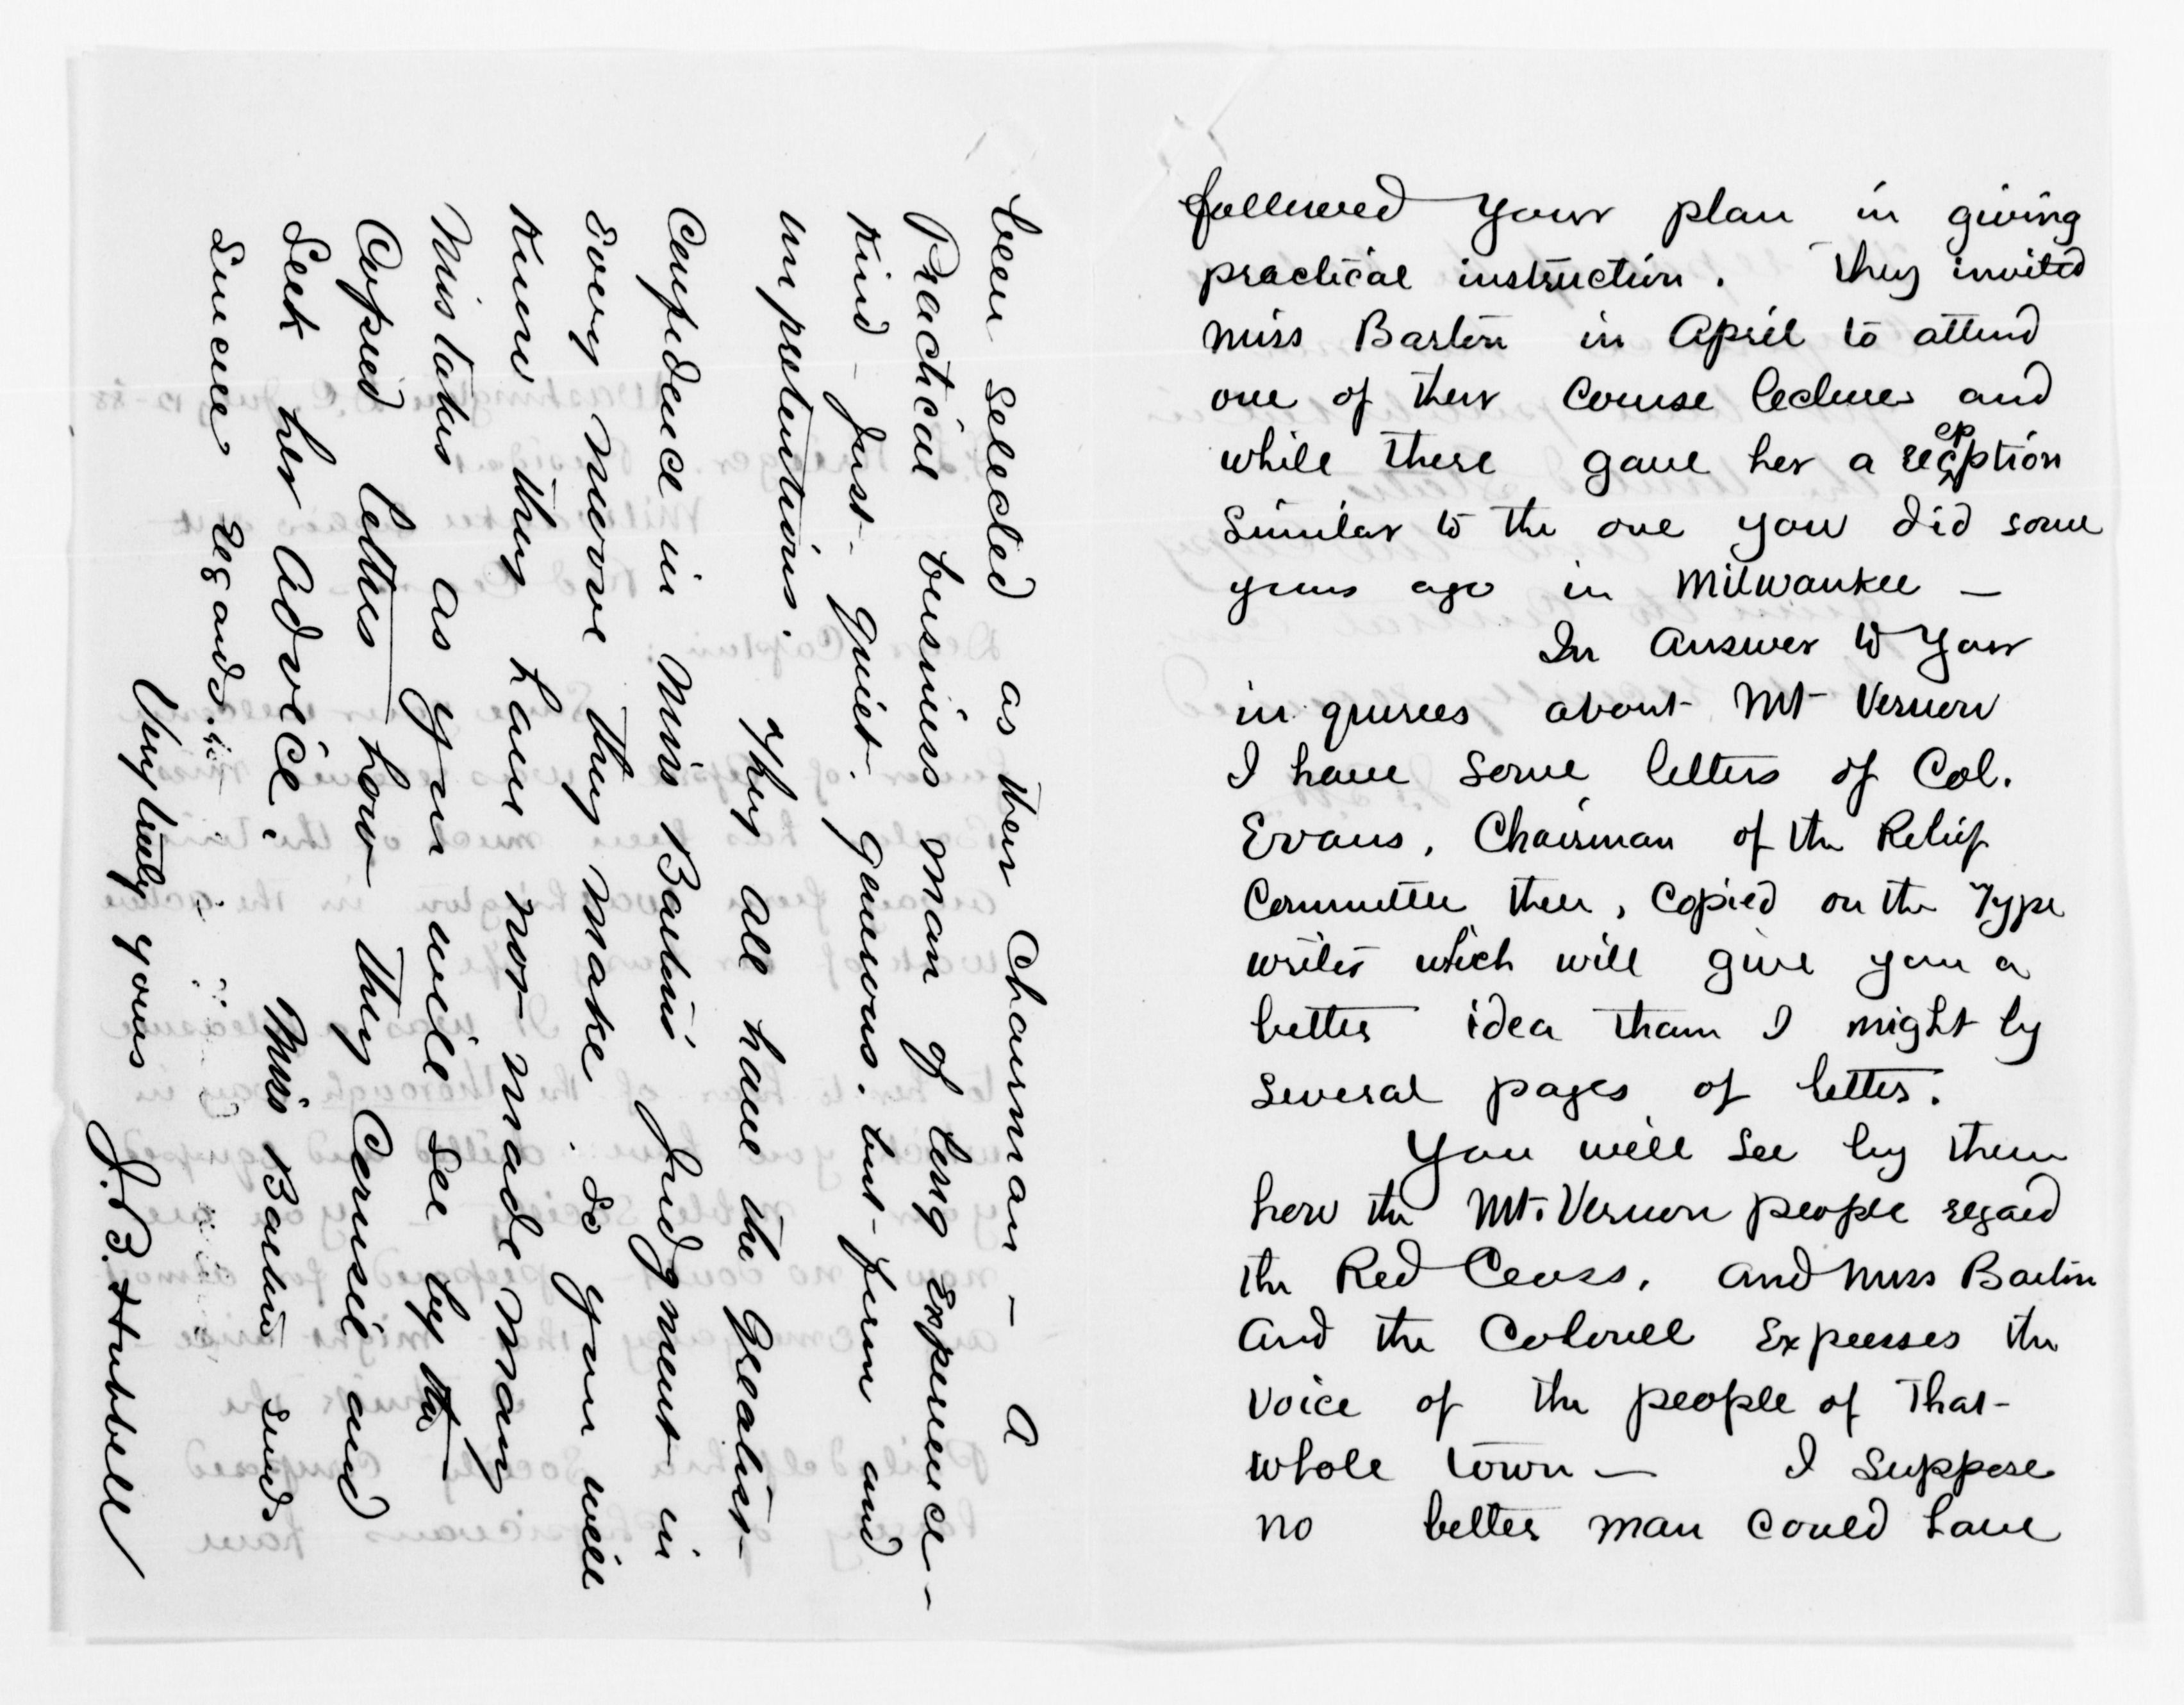 followed your plan in giving
practical instruction. They invited
Miss Barton in April to attend
one of their course lectures and
while there gave her a reception
similar to the one you did some
years ago in Milwaukee —
In answer to your
inquiries about Mt Vernon
I have some letters of Col.
Evans, Chairman of the Relief
Committee there, copied on the Type
writer which will give you a
better idea than I might by
several pages of letter.
You will see by them
how the Mt. Vernon people regard
the Red Cross, and Miss Barton
and the Colonell expresses the
voice of the people of that
whole town — I suppose
no better man could have
been selected as their Chairman — A
Practical business man of long experience —
kind — just — quiet. generous. but firm and
unpretentious. They all have the greatest
Confidence in Miss Barton's Judgment in
every move they make. So you will
know they have not made many
mistakes as you will see by the
Copied letters how they Counsel and
Seek her advice. Miss Barton sends
Sincere regards.
Very truly yours
J. B. Hubbell